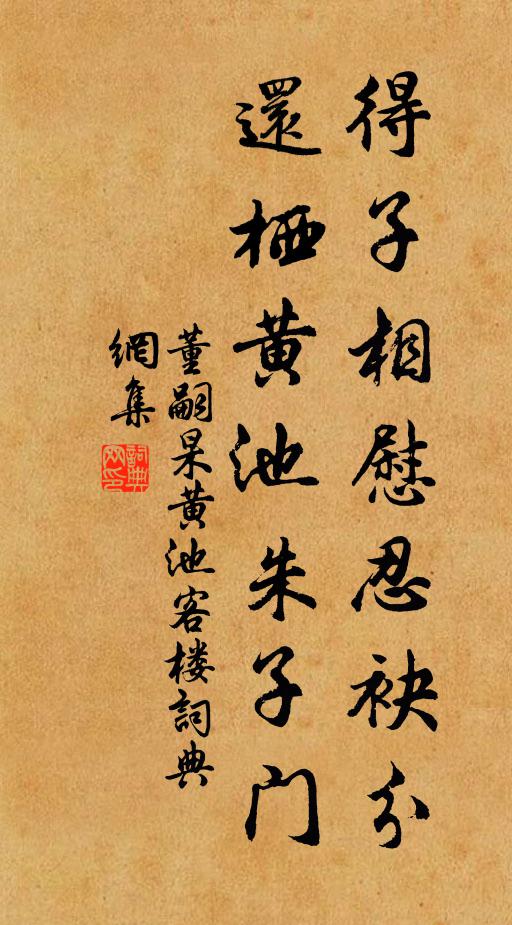 得子相慰忍袂分
還栖黄池朱子门
董嗣杲黄池客楼詞典
網集
詞典網印